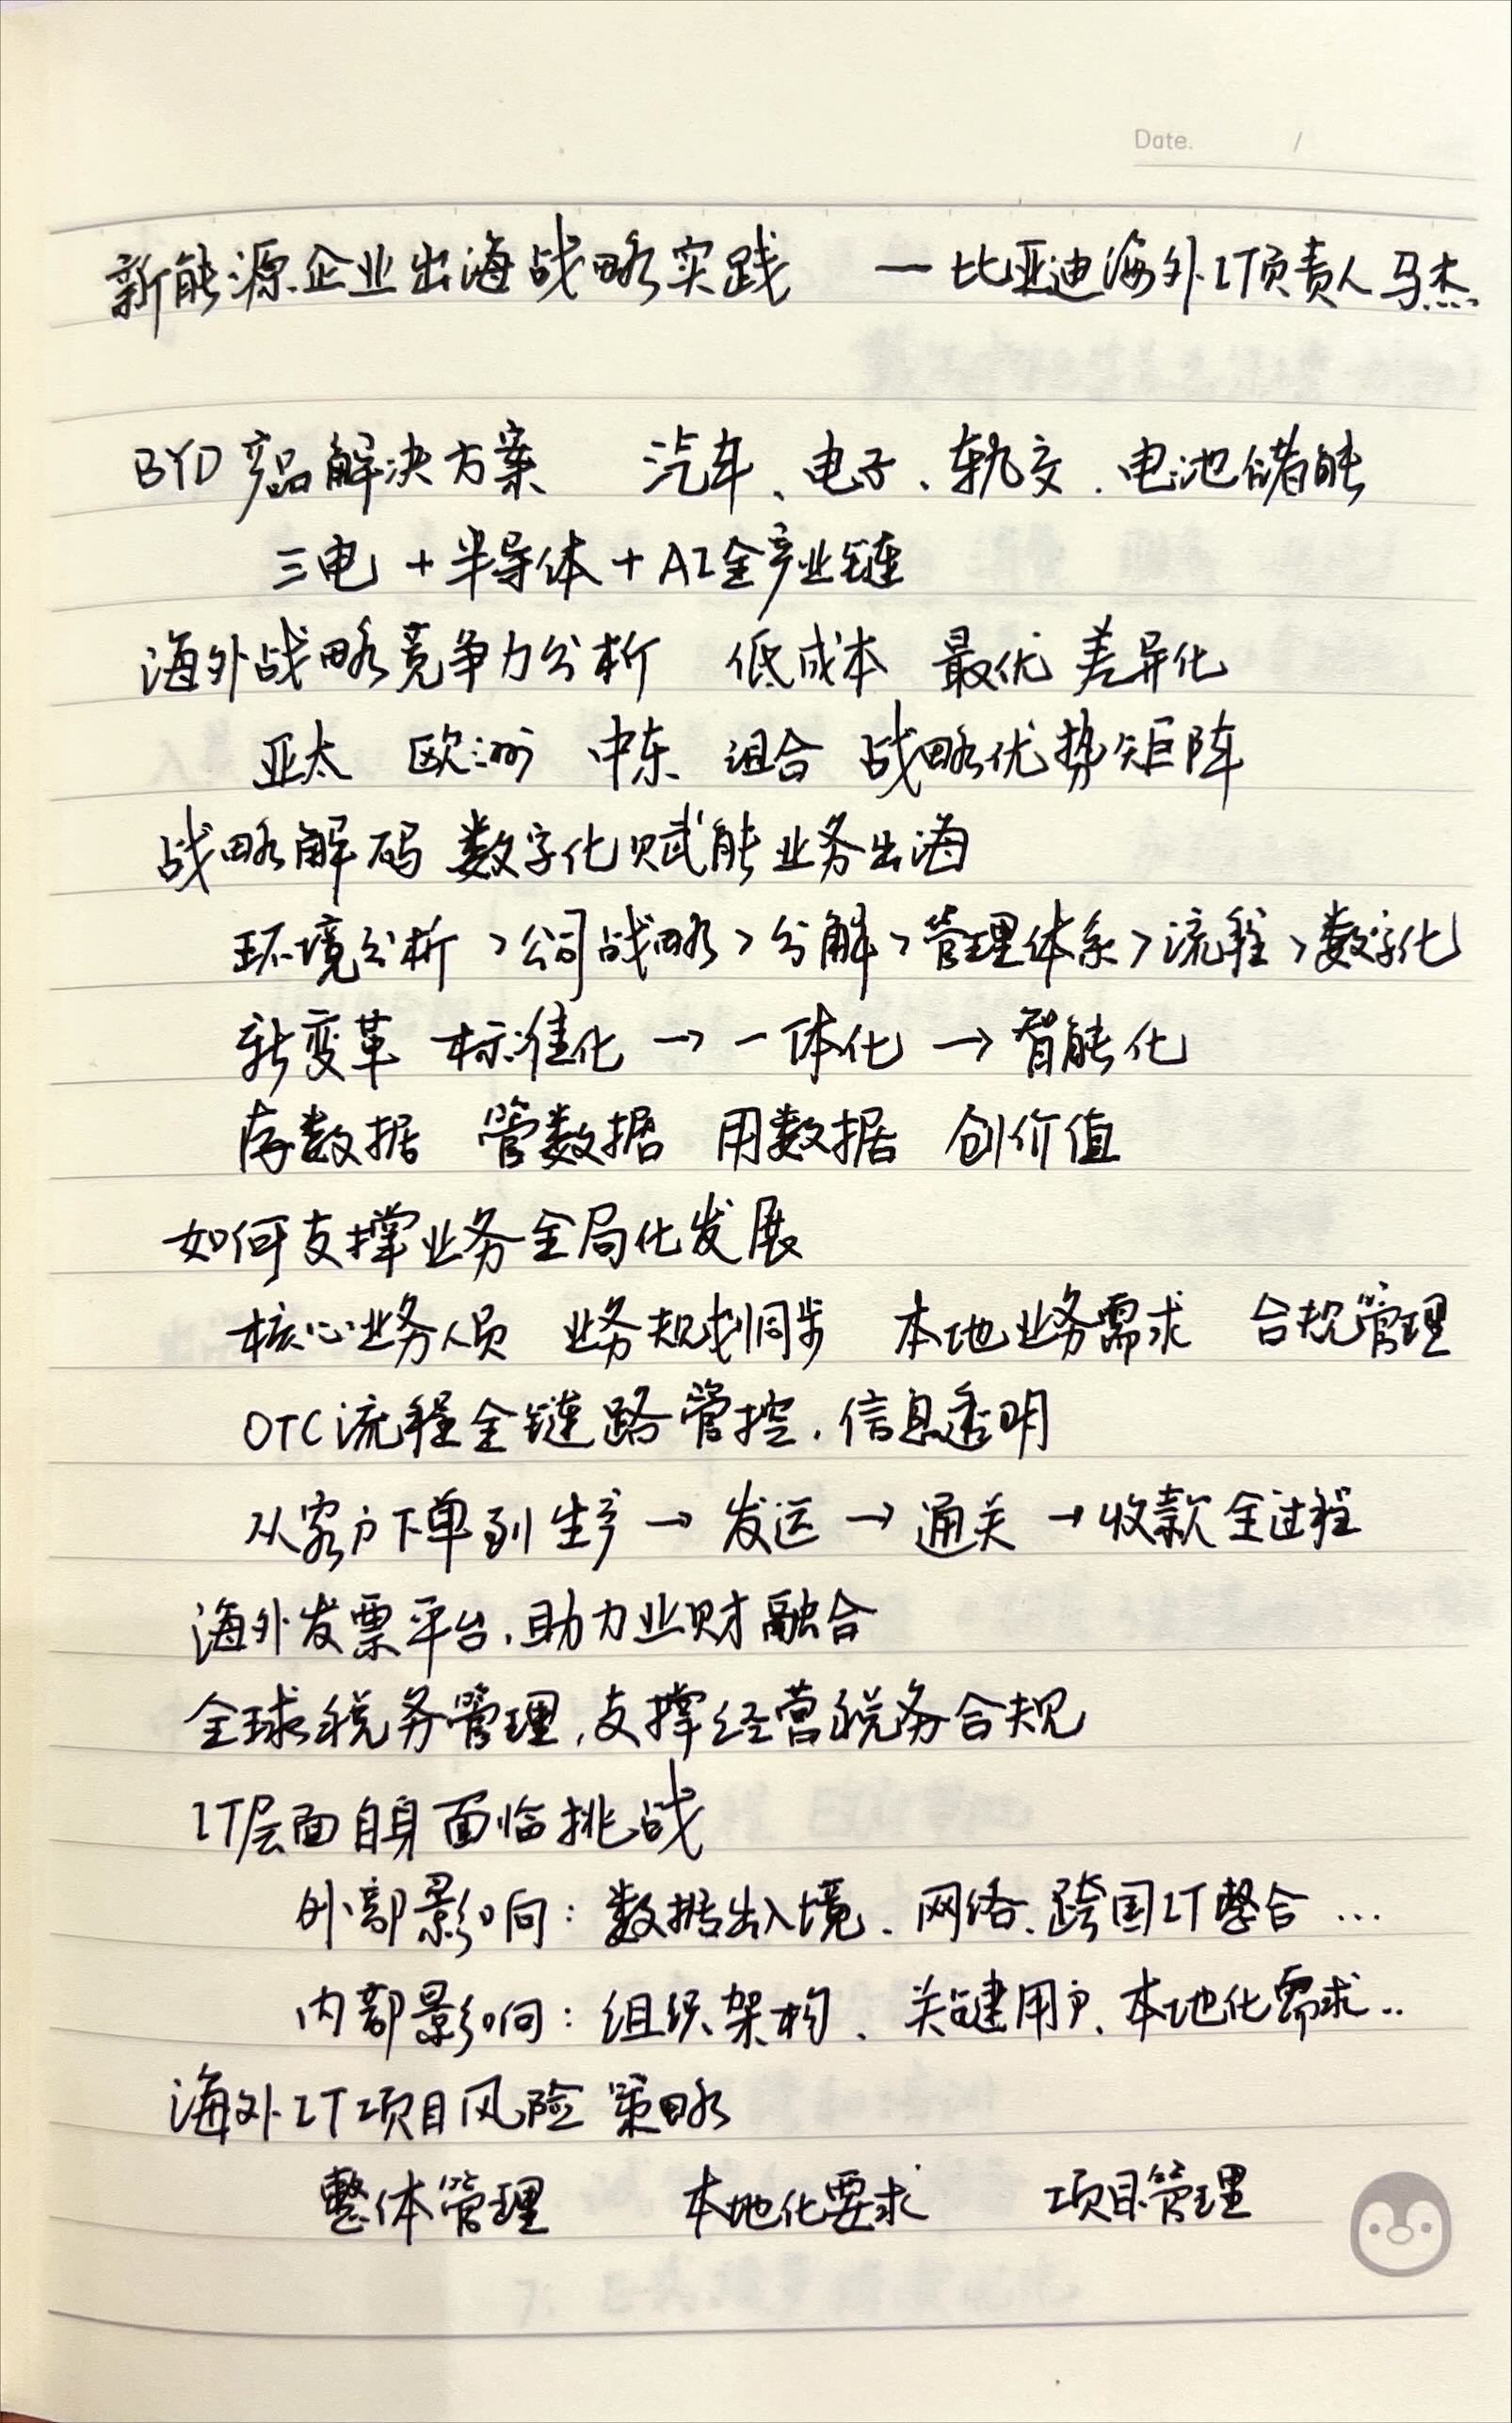 Date. /
新能源企业出海战略实践 — 比亚迪海外IT负责人马杰
BYD产品解决方案 汽车、电子、轨交、电池储能
三电 + 半导体 + AI全产业链
海外战略竞争力分析 低成本 最优 差异化
亚太 欧洲 中东 组合 战略优势矩阵
战略解码 数字化赋能业务出海
环境分析 > 公司战略 > 分解 > 管理体系 > 流程 > 数字化
新变革 标准化 → 一体化 → 智能化
存数据 管数据 用数据 创价值
如何支撑业务全局化发展
核心业务人员 业务规划同步 本地业务需求 合规管理
OTC流程全链路管控，信息透明
从客户下单到生产 → 发运 → 通关 → 收款全过程
海外发票平台，助力业财融合
全球税务管理，支撑经营税务合规
IT层面自身面临挑战
外部影响：数据出入境、网络、跨国IT整合 ...
内部影响：组织架构、关键用户、本地化需求..
海外IT项目风险策略
整体管理 本地化要求 项目管理